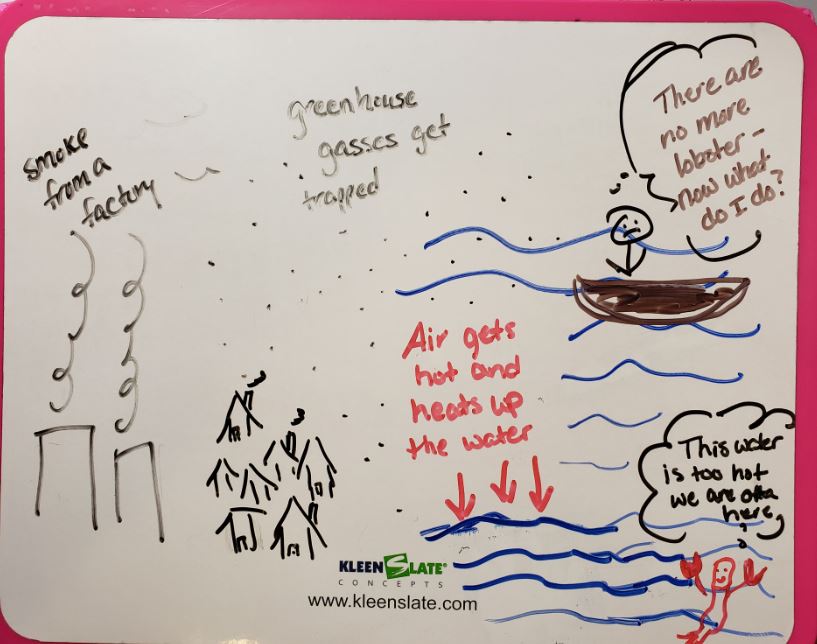 smoke
from a
factory
greenhouse
gasses get
trapped
There are
no more
lobster -
now what
do I do?
Air gets
hot and
heats up
the water
This water
is too hot
we are otta
here
KLEENSLATE®
CONCEPTS
www.kleenslate.com